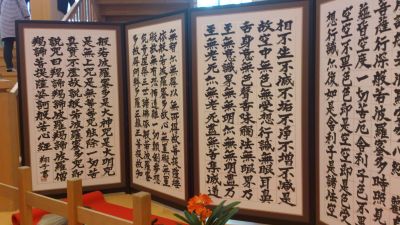 菩薩行深般若波羅蜜多時照見
蘊皆空度一切苦厄舍利子色不異
空空不異色色即是空空即是色受
想行識亦復如是舍利子是諸法空
相不生不滅不垢不淨不增不減是
故空中無色無受想行識無眼耳鼻
舌身意無色聲香味觸法無眼界乃
至無意識界無無明亦無無明盡乃
至無老死亦無老死盡無苦集滅道
無智亦無得以無所得故菩提薩埵
依般若波羅蜜多故心無罣礙無罣
礙故無有恐怖遠離一切顛倒夢想
究竟涅槃三世諸佛依般若波羅蜜
多故得阿耨多羅三藐三菩提故知
般若波羅蜜多是大神咒是大明咒
是無上咒是無等等咒能除一切苦
真實不虛故說般若波羅蜜多咒即
說咒曰羯諦羯諦波羅羯諦波羅僧
羯諦菩提薩婆訶般若心經